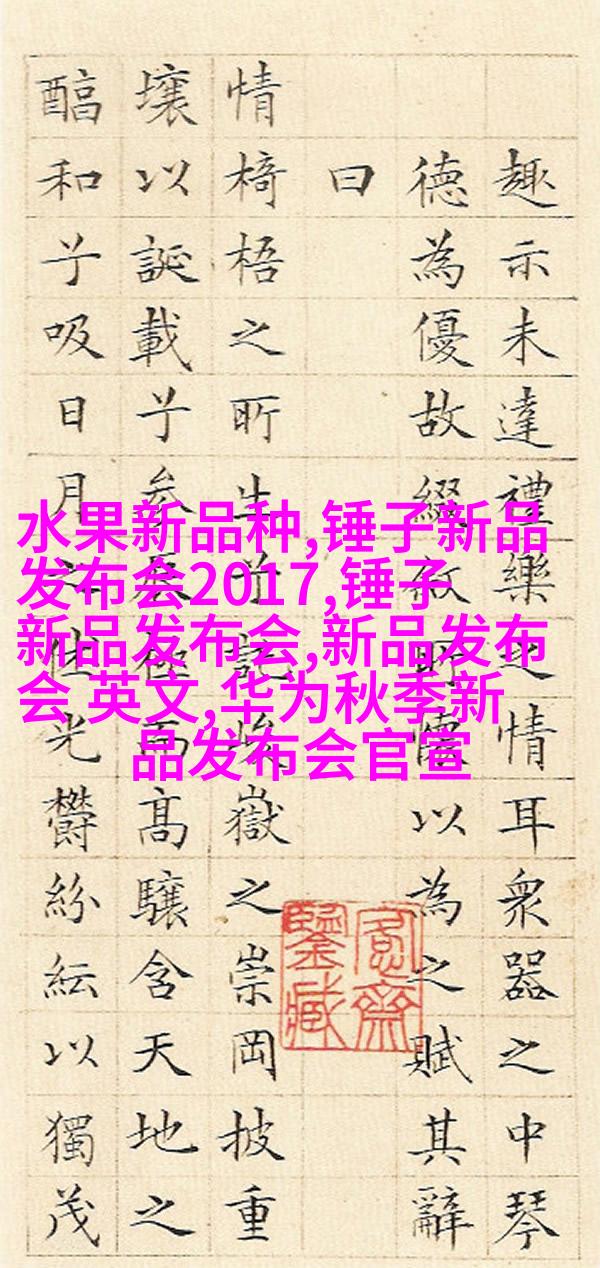 趣示未達禮樂之情耳衆器之中琴
德為優故綴叙所懷以為之賦其辭
曰
情椅梧之所生兮託峻嶽之崇岡披重
壤以誕載兮參辰極而高驤含天地之
醕和兮吸日月之休光鬱紛紜以獨茂
愙齋鑒藏
水果新品种,锤子新品
发布会2017,锤子
新品发布会,新品发布
会 英文,华为秋季新
品发布会官宣